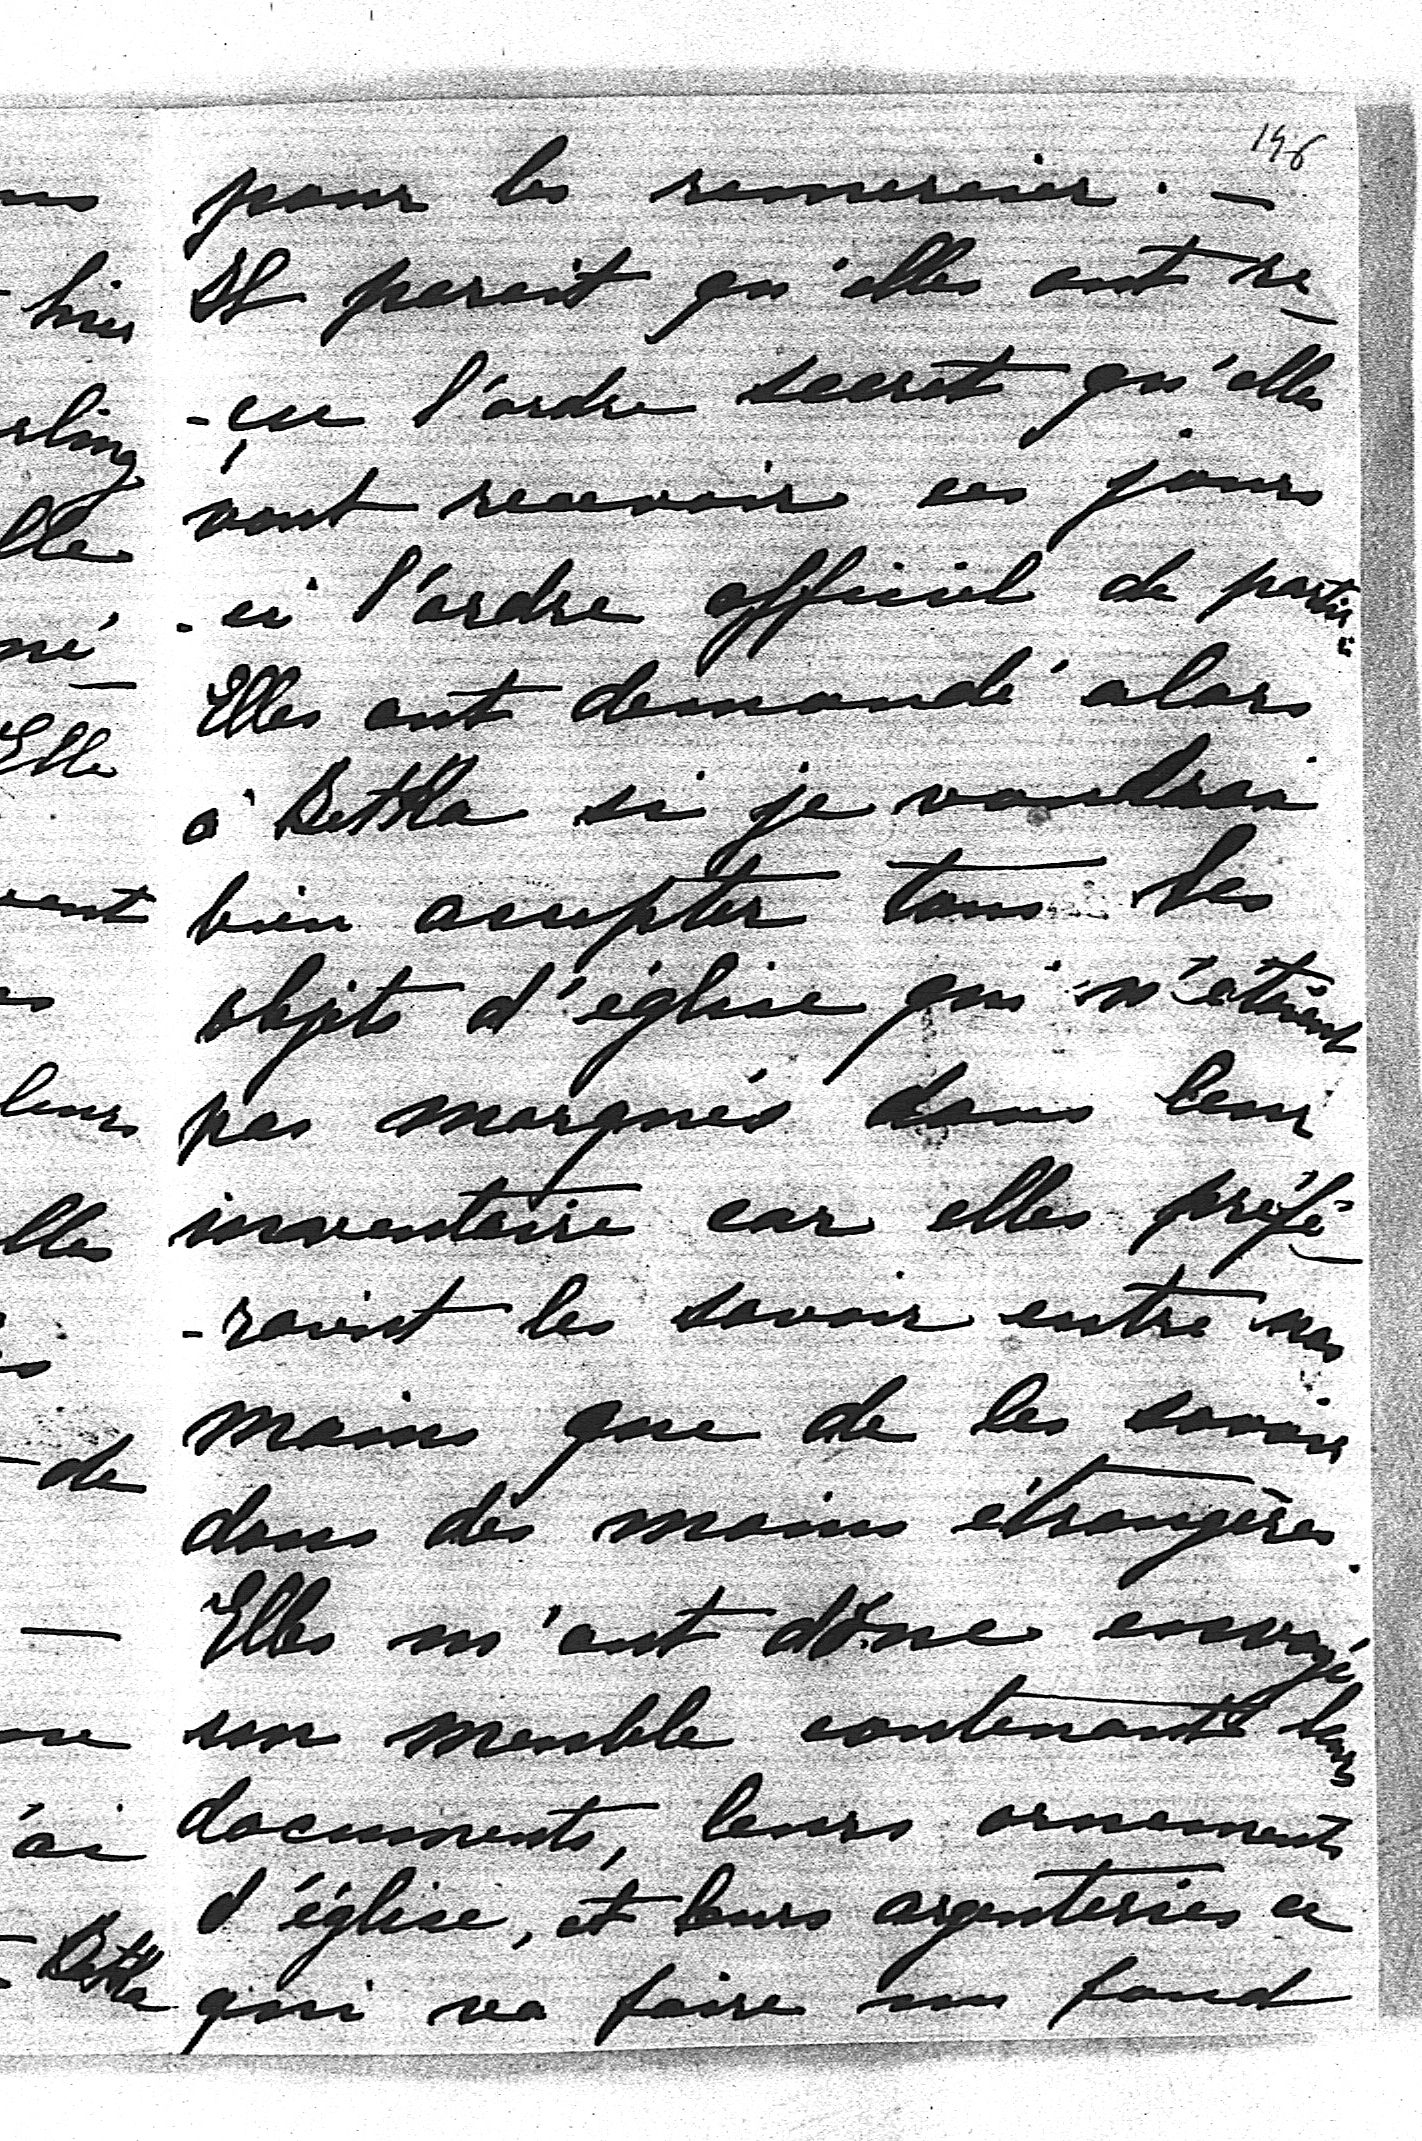 196
pour les remercier. —
Il parait qu'elles ont re-
-çu l'ordre secret qu'elles
vont recevoir ces jours
-ci l'ordre officiel de partir.
Elles ont demandé alors
à Bettla si je voudrai
bien accepter tous les
objets d'église qui n'étaient
pas marqués dans leur
inventaire car elles préfé-
-raient les savoir entre nos
mains que de les savoir
dans des mains étrangères.
Elles m'ont donc envoyé
un meuble contenant leurs
documents, leurs ornements
d'église, et leurs argenteries ce
qui va faire un fond
hier
rling
né
Elle
leurs
lles
de
—
'ai
Bettla